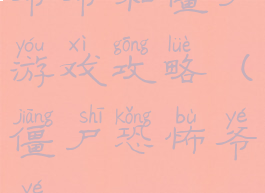 yóu xì gōng lüè
游戏攻略（
jiāng shī kǒng bù yé
僵尸恐怖爷
yé